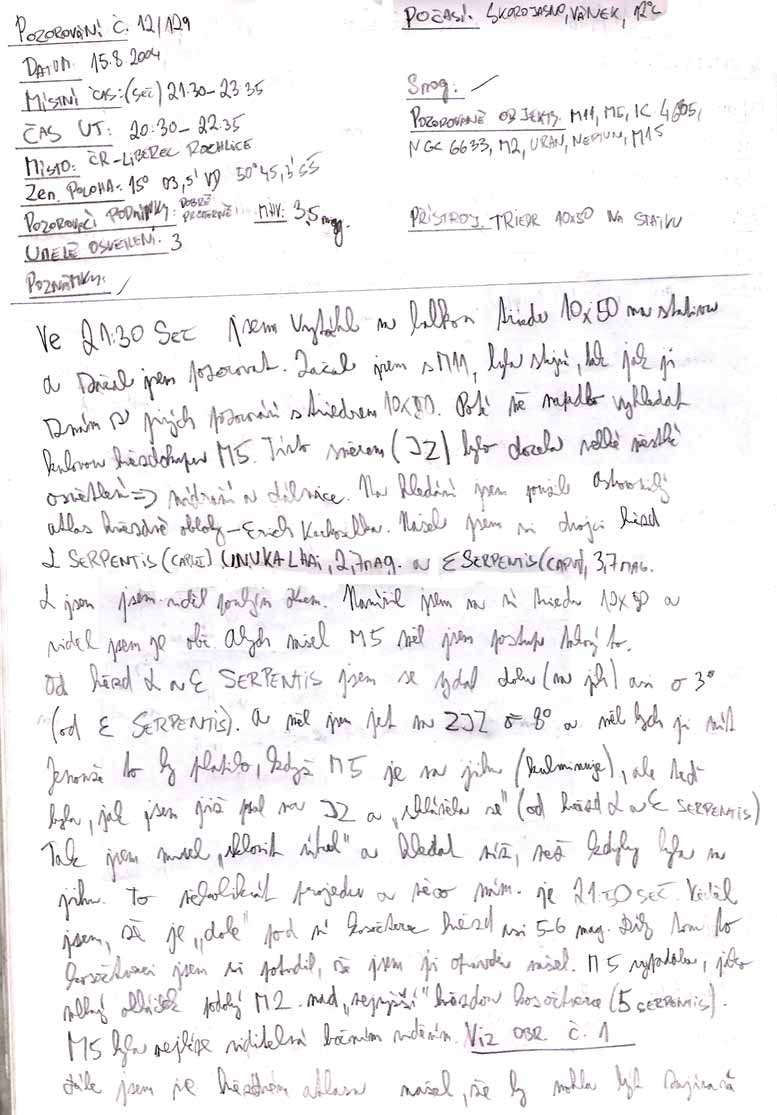 POZOROVÁNÍ Č. 12/129
DATUM: 15.8.2004
MÍSTNÍ ČAS: (SEČ) 21:30–23:35
ČAS UT: 20:30–22:35
MÍSTO: ČR–LIBEREC ROCHLICE
ZEM. POLOHA: 15° 03,5' VD 50°45,3' SŠ
POZOROVACÍ PODMÍNKY: DOBRÉ PRŮMĚRNÉ MHV: 3,5 mag.
UMĚLÉ OSVĚTLENÍ: 3
POZNÁMKY: /
POČASÍ: SKOROJASNO, VÁNEK, 12°C
Smog: /
POZOROVANÉ OBJEKTY: M11, M5, IC 4665,
NGC 6633, M2, URAN, NEPTUN, M15
PŘÍSTROJ: TRIEDR 10x50 NA STATIVU
Ve 21:30 SEČ jsem vytáhl na balkon triedr 10x50 na stativu
a začal jsem pozorovat. Začal jsem s M11, byla stejná, tak jak ji
znám z jiných pozorování s triedrem 10x50. Poté mě napadlo vyhledat
kulovou hvězdokupu M5. Tímto směrem (JZ) bylo docela velké městské
osvětlení => nádraží a dálnice. Na hledání jsem použil
atlas hvězdné oblohy – Erich Karkoschka. Našel jsem si dvojici hvězd
α SERPENTIS (CAPUT) UNUKALHAI, 2,7 mag. a ε SERPENTIS (CAPUT), 3,7 MAG.
α jsem viděl pouhým okem. Namířil jsem na ni triedr 10x50 a
viděl jsem je obě. Abych našel M5 měl jsem postup takový to.
Od hvězd α a ε SERPENTIS jsem se vydal dolu (na jih) asi o 3°
(od ε SERPENTIS). a měl jsem jet na ZJZ o 8° a měl bych ji mít
Jenomže to by platilo, když M5 je na jihu (kulminuje), ale teď
byla, jak jsem již psal na JZ a „skláněla se" (od hvězd α a ε SERPENTIS)
Tak jsem musel „sklonit úhel" a hledat níž, než kdyby byla na
jihu. to několikrát projedu a něco mám. je 21:50 SEČ. Věděl
jsem, že je „dole" pod ní kosočtverec hvězd asi 5-6 mag. Díky tomu to
kosočtverci jsem si potvrdil, že jsem ji opravdu našel. M5 vypadala, jako
mlhavý obláček podobný M2 nad „nejvyšší" hvězdou kosočtverce (5 SERPENTIS).
M5 byla nejlépe viditelná bočním viděním. Viz OBR. Č. 1
dále jsem ve hvězdném atlasu našel, že by mohla být zajímavá